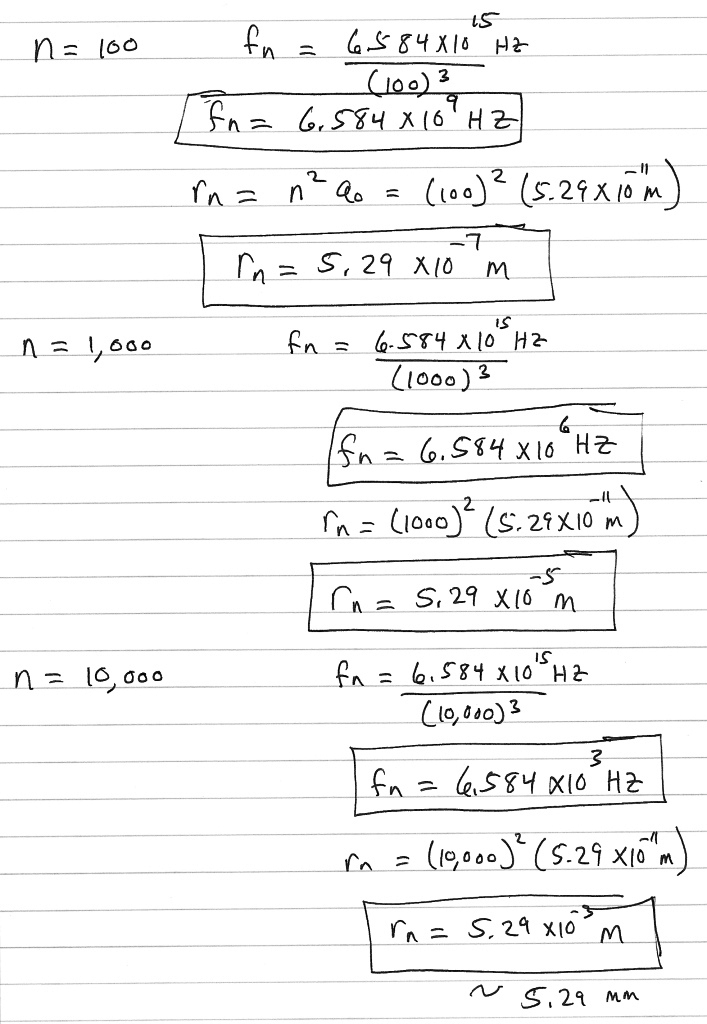 n = 100 fn = 6.584 x 10^15 Hz / (100)^3
fn = 6.584 x 10^9 Hz
rn = n^2 a0 = (100)^2 (5.29 x 10^-11 m)
rn = 5.29 x 10^-7 m
n = 1,000 fn = 6.584 x 10^15 Hz / (1000)^3
fn = 6.584 x 10^6 Hz
rn = (1000)^2 (5.29 x 10^-11 m)
rn = 5.29 x 10^-5 m
n = 10,000 fn = 6.584 x 10^15 Hz / (10,000)^3
fn = 6.584 x 10^3 Hz
rn = (10,000)^2 (5.29 x 10^-11 m)
rn = 5.29 x 10^-3 m
~ 5.29 mm